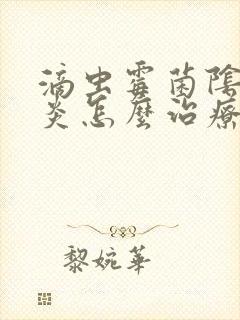 滴虫霉菌陰
炎怎麼治療
黎婉華